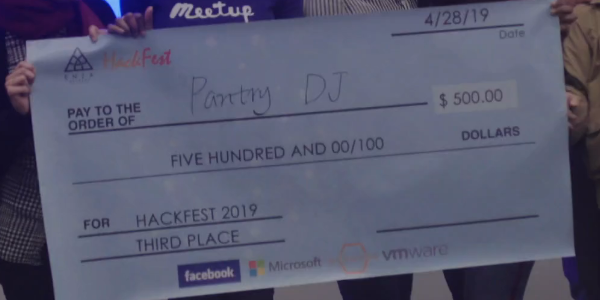 Meetup
4/28/19
Date
HackFest
Pantry DJ
PAY TO THE
ORDER OF
$ 500.00
FIVE HUNDRED AND 00/100
DOLLARS
FOR HACKFEST 2019
THIRD PLACE
facebook
Microsoft
vmware